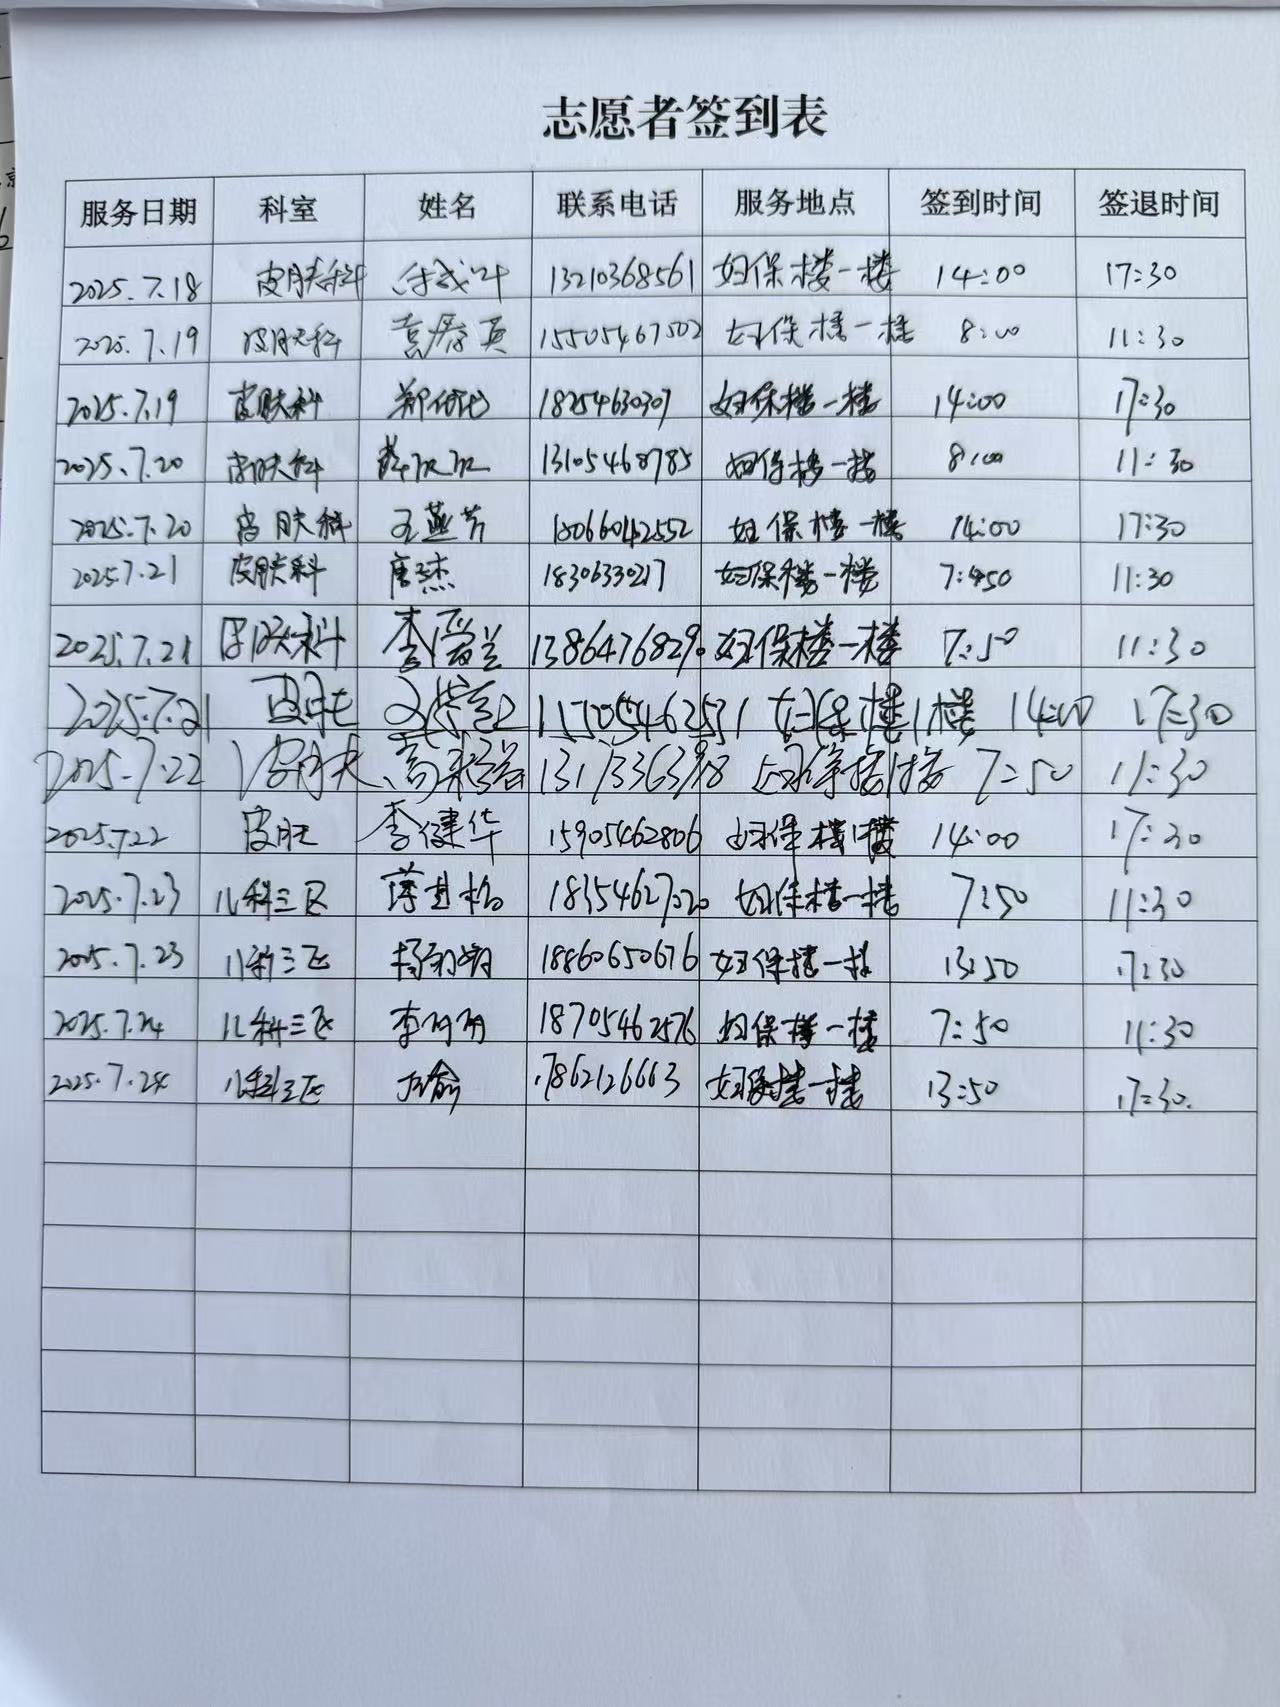 志愿者签到表
服务日期 科室 姓名 联系电话 服务地点 签到时间 签退时间
2025.7.18 皮肤科 13210368561 妇保楼一楼 14:00 17:30
2025.7.19 皮肤科 15505467502 妇保楼一楼 8:00 11:30
2025.7.19 皮肤科 18254630307 妇保楼一楼 14:00 17:30
2025.7.20 皮肤科 13105468785 妇保楼一楼 8:00 11:30
2025.7.20 皮肤科 王燕芳 18066042552 妇保楼一楼 14:00 17:30
2025.7.21 皮肤科 唐杰 18306330217 妇保楼一楼 7:50 11:30
2025.7.21 皮肤科 妇保楼一楼 7:50 11:30
2025.7.21 皮肤 妇保楼1楼 14:00 17:30
2025.7.22 皮肤 7:50 11:30
2025.7.22 皮肤 李健华 15905462806 妇保楼1楼 14:00 17:30
2025.7.23 儿科三区 妇保楼一楼 7:50 11:30
2025.7.23 儿科三区 18860650676 妇保楼一楼 13:50 17:30
2025.7.24 儿科三区 18705462576 妇保楼一楼 7:50 11:30
2025.7.24 儿科三区 17862126663 妇保楼一楼 13:50 17:30